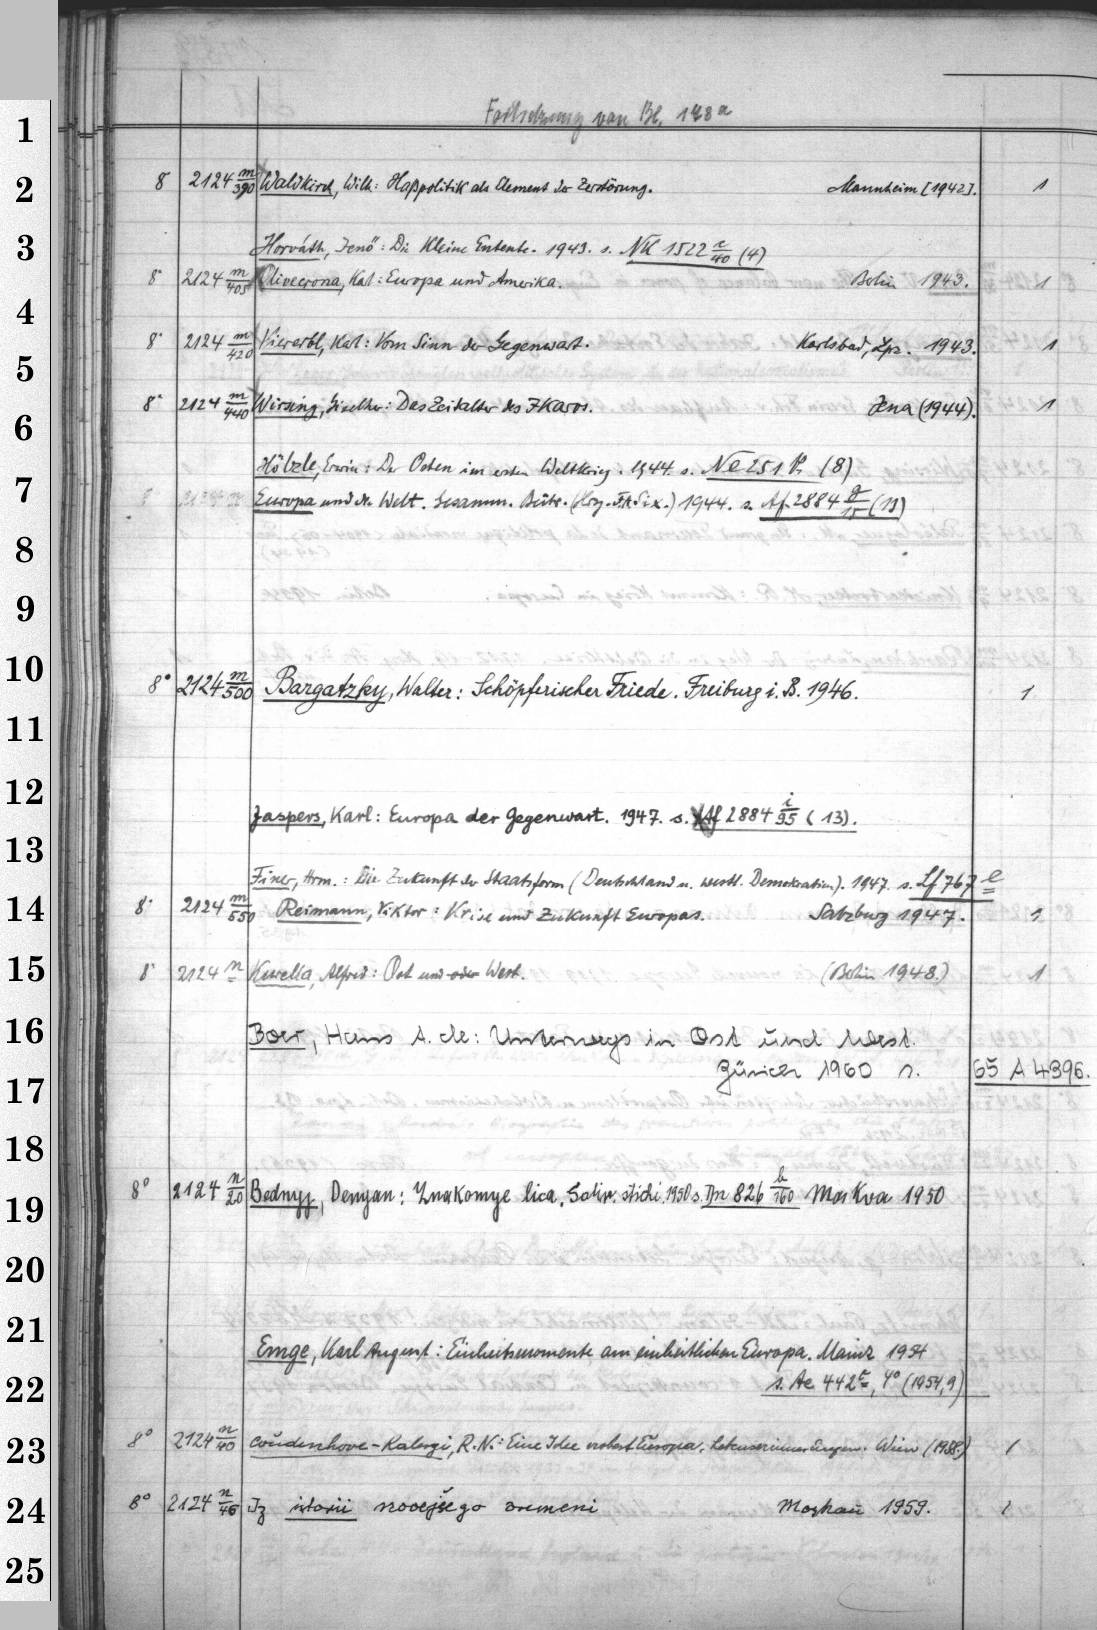 1
2
3
4
5
6
7
8
9
10
11
12
13
14
15
16
17
18
19
20
21
22
23
24
25
Fortsetzung von Bl. 178a
8 2124 m/390 Waldkirch, Wilh.: Haßpolitik als Element der Zerstörung. Mannheim [1942]. 1
Horváth, Jenö: Die Kleine Entente. 1943. s. 1522 r/40 (4)
8° 2124 m/405 Olivecrona, Kal: Europa und Amerika. Berlin 1943. 1
8° 2124 m/420 Viererbl, Karl: Vom Sinn der Gegenwart. Karlsbad, Lpz. 1943. 1
8° 2124 m/440 Wirsing, Giselher: Das Zeitalter des Ikaros. Jena (1944). 1
Hölzle, Erwin: Der Osten im ersten Weltkrieg. 1944. s. (8)
Europa und die Welt. Gesamm. Beitr. (Hrg. F.A. Six.) 1944. s. Af 2884 g/15 (13)
8° 2124 m/500 Bargatzky, Walter: Schöpferischer Friede. Freiburg i. B. 1946. 1
Jaspers, Karl: Europa der Gegenwart. 1947. s. Af 2884 i/95 (13).
Finer, Hrm.: Die Zukunft der Staatsform (Deutschland u. westl. Demokratien). 1947. s. Lf 767 e
8° 2124 m/550 Reimann, Viktor: Krise und Zukunft Europas. Salzburg 1947. 1
8° 2124 n Kurella, Alfred: Ost und oder West. (Berlin 1948.) 1
Boer, Hans A. de: Unterwegs in Ost und West.
Zürich 1960 s. 65 A 4396.
8° 2124 n/20 Bednyj, Demjan: Znakomye lica. Satir. stichi. 1950 s. 826 b/160 Moskva 1950
Emge, Karl August: Einheitsmomente am einheitlichen Europa. Mainz 1954
s. Ae 442, 4° (1954,9)
8° 2124 n/40 Coudenhove-Kalergi, R. N.: Eine Idee erobert Europa. Lebenserinnerungen. Wien (1958.) 1
8° 2124 n/46 Iz istorii novejšego vremeni Moskau 1959. 1